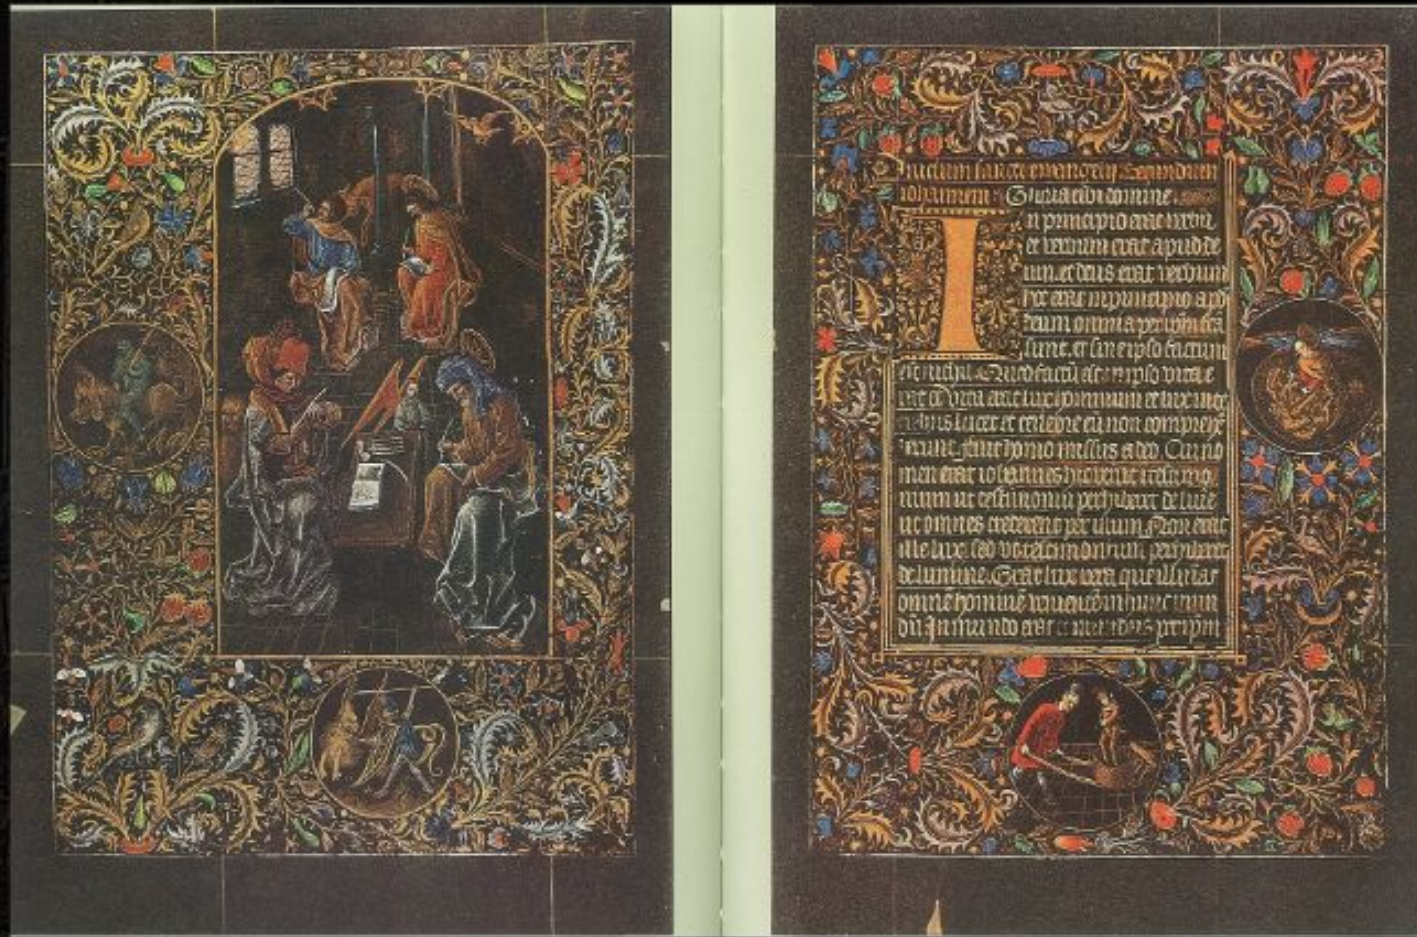 Inicium sancte ewangelii Secundum
Johannem. Gloria tibi domine.
In principio erat verbu
et verbum erat apud de
um. et deus erat verbum
hoc erat in principio apd
deum omnia per ipm fca
sunt. et sine ipso factum
est nichil. Quod factu est in ipso vita e
rat et vita erat lux hominum et lux in te
nebris lucet et tenebre eu non comprehe
erunt. fuit homo missus a deo. Cui no
men erat iohannes hic venit in testimo
nium ut testimoniu perhiberet de lumi
ut omnes crederent per illum. Non erat
ille lux. sed ut testimonium perhiberet
de lumine. Erat lux vera que illuiat
omne homine venientem in hunc mun
du In mundo erat et mundus per ipm